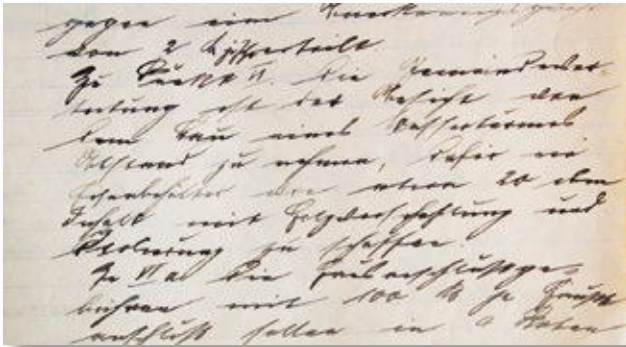 gegen eine Anerkennungsgebühr
von 2 M erteilt
Zu Punkt II. Die Gemeindever-
tretung ist der Absicht von
dem Bau eines Wasserturmes
Abstand zu nehmen, dafür ein
von etwa 20 cbm
Inhalt mit Holzverschalung und
Isolierung zu schaffen.
Zu VI a Die Hausanschlußge-
bühren mit 100 M je Haupt
anschluß sollen in 4 Raten